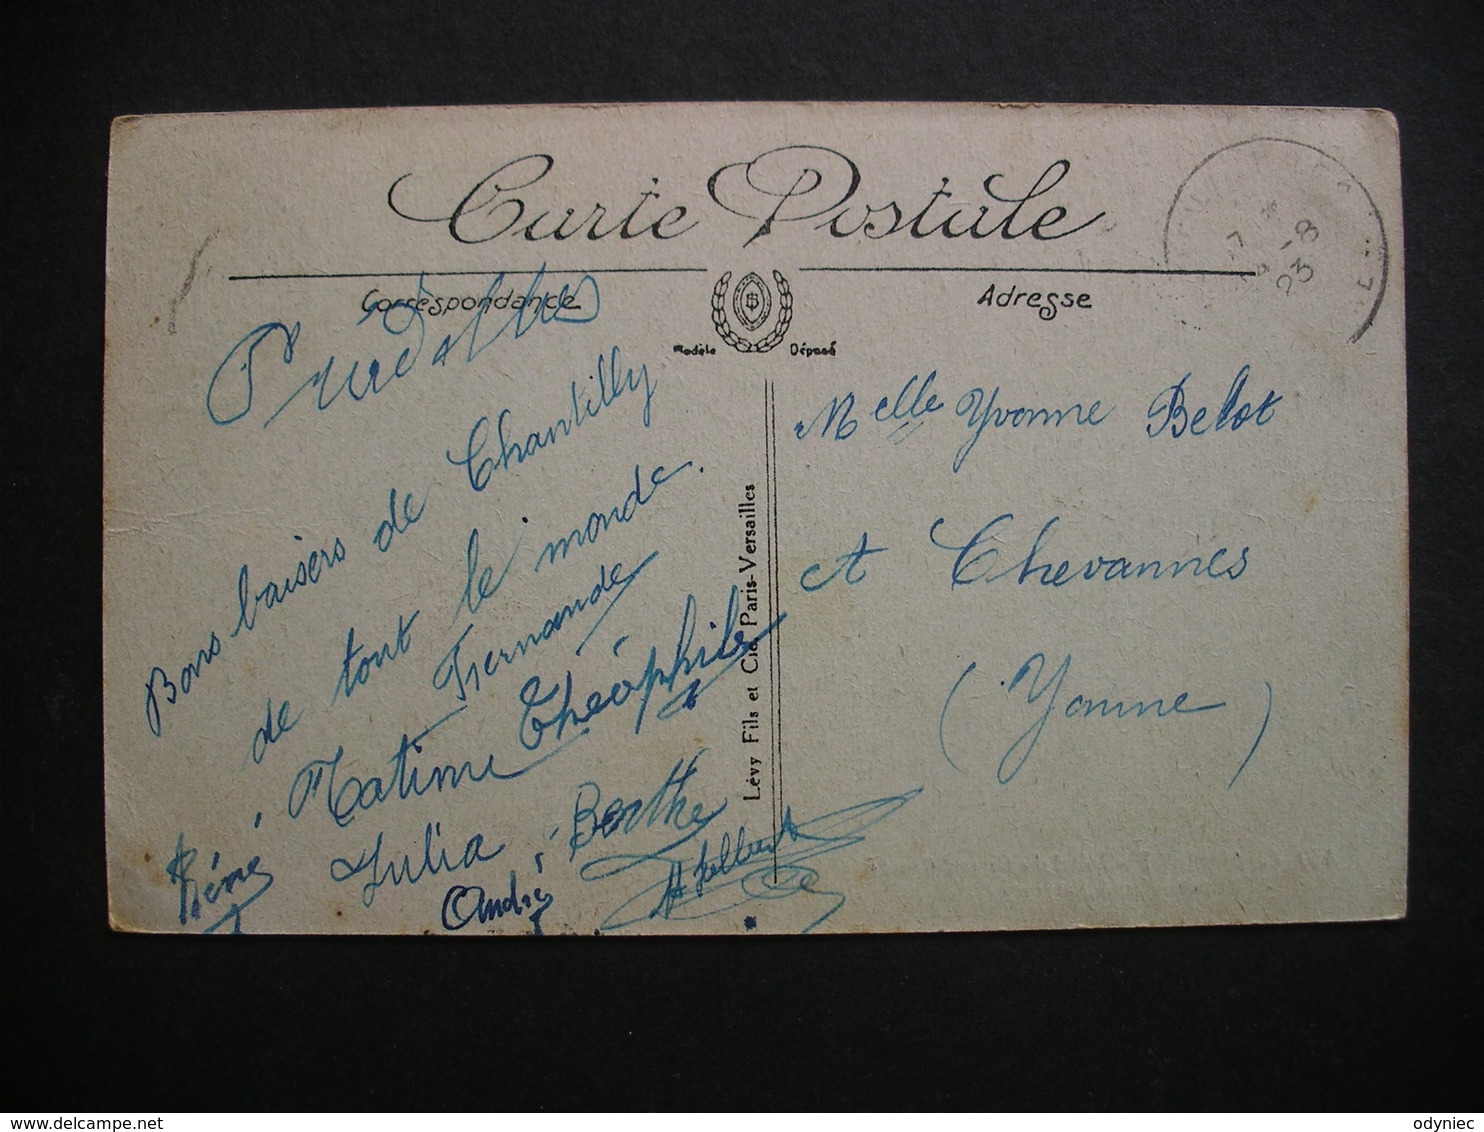 Carte Postale
Correspondance
Adresse
Modèle Déposé
Bons baisers de Chantilly
de tout le monde.
Fernande
Théophile
René, Julia
André, Berthe
Melle Yvonne Belot
A Chevannes
(Yonne)
Lévy Fils et Cie, Paris-Versailles
17
-8
23
odyniec
delcampe.net